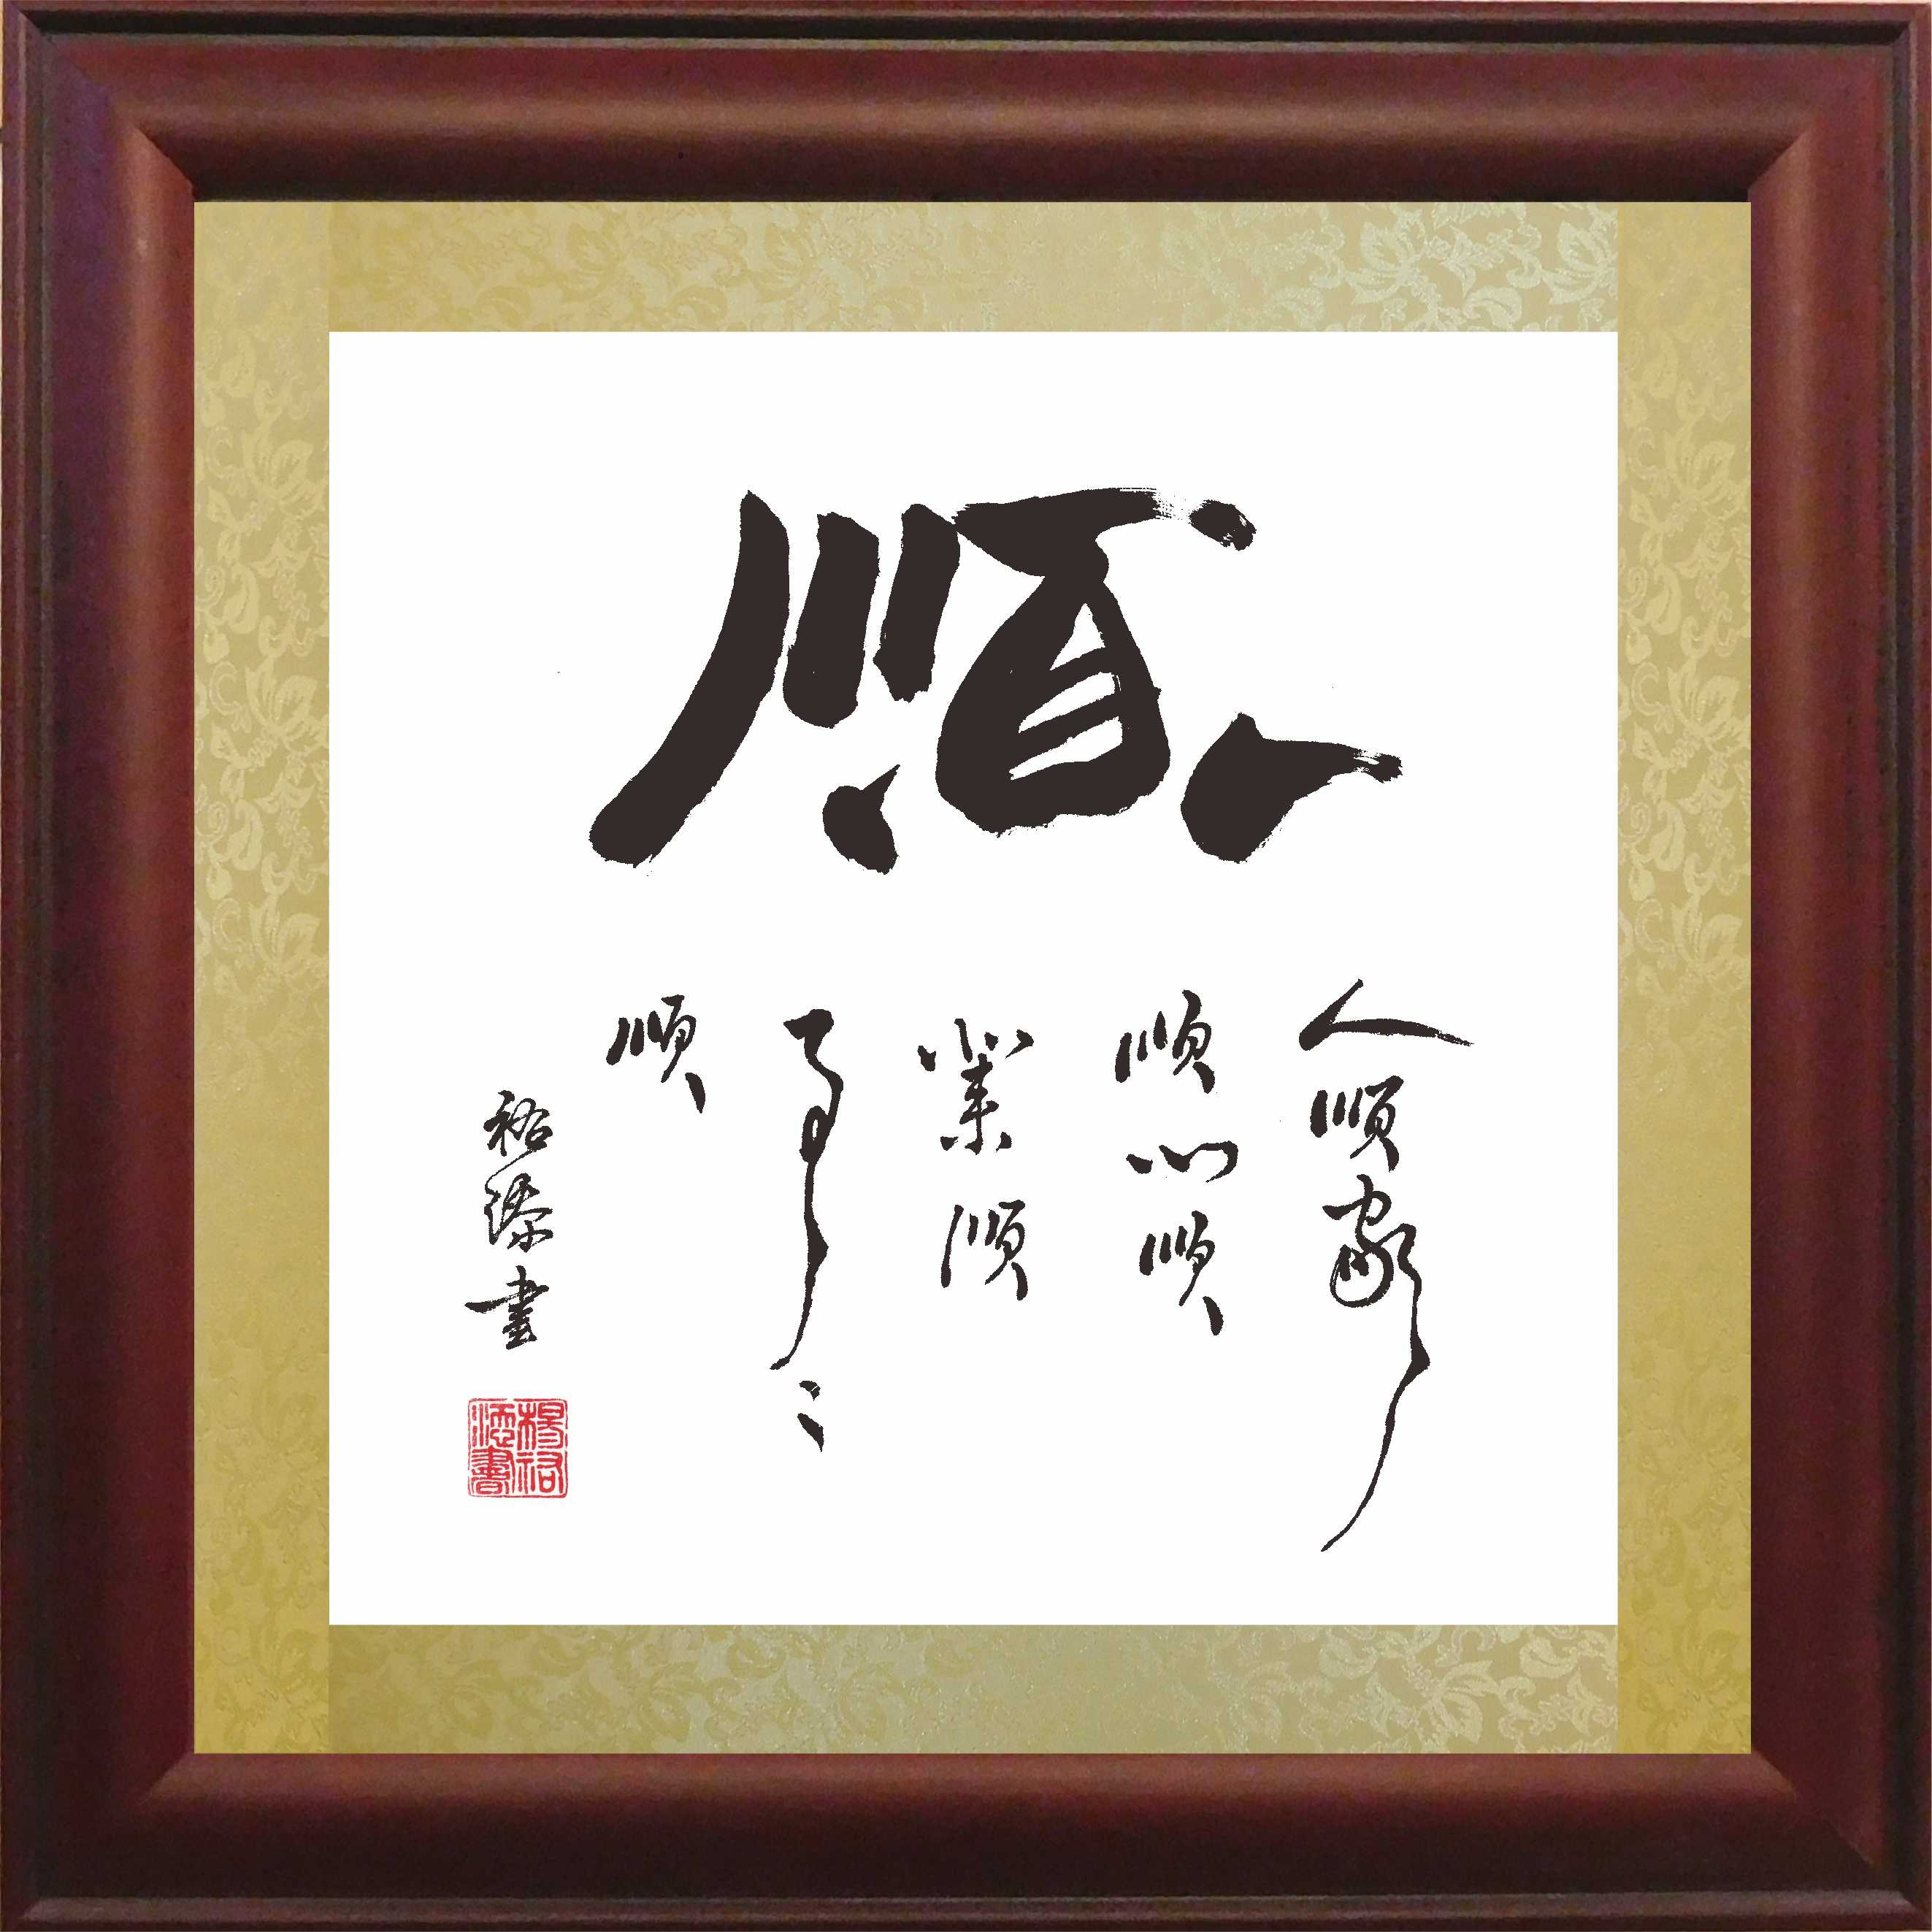 順
人順家
順心順
業順
事々
順
裕添書
楊裕
添書